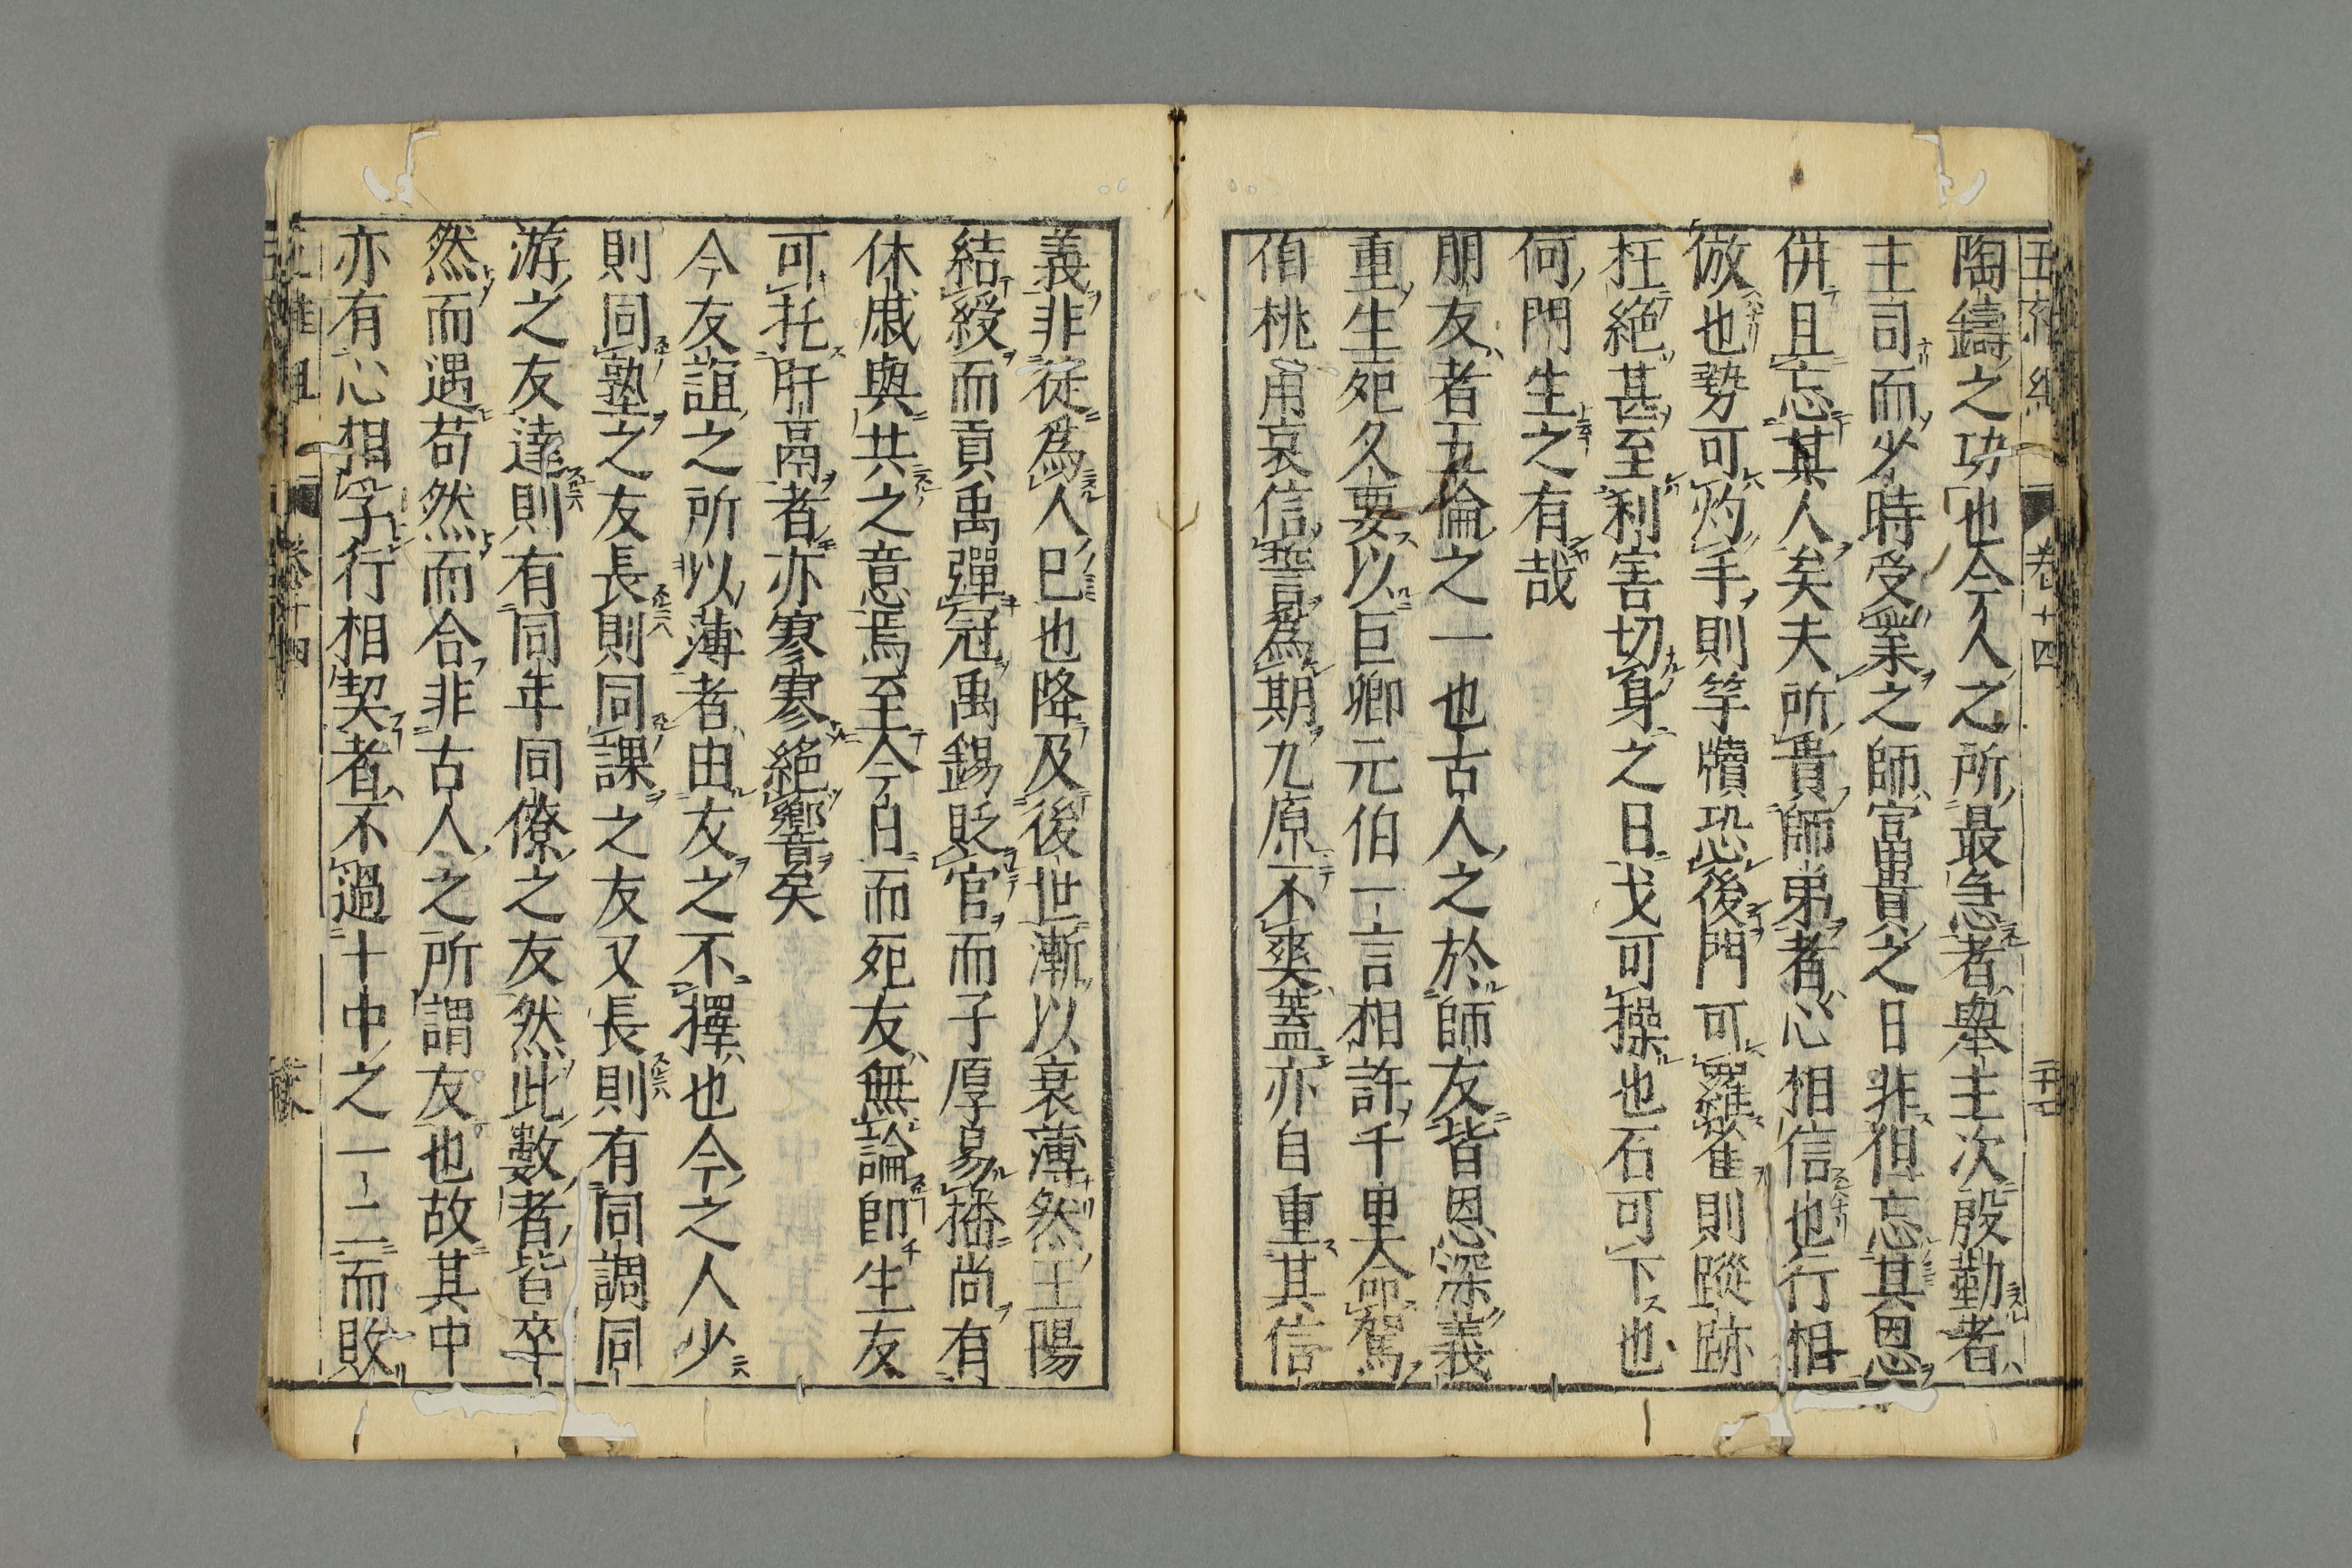 陶鑄之功也今人之所最急者舉主次殷勤者
主司而少時受業之師富貴之日非但忘其恩
併且忘其人矣夫所貴師弟者心相信也行相
倣也勢可灼手則竿牘恐後門可羅雀則蹤跡
枉絕甚至利害切身之日戈可操也石可下也
何門生之有哉
朋友者五倫之一也古人之於師友皆恩深義
重生死久要以巨卿元伯一言相許千里命駕
伯桃甬哀信誓爲期九原不爽蓋亦自重其信
義非徒爲人已也降及後世漸以衰薄然王陽
結綬而貢禹彈冠禹錫貶官而子厚易播尚有
休戚與共之意焉至今日而死友無論卽生友
可托肝鬲者亦寥寥絕響矣
今友誼之所以薄者由友之不擇也今之人少
則同塾之友長則同課之友又長則有同調同
游之友達則有同年同僚之友然此數者皆卒
然而遇苟然而合非古人之所謂友也故其中
亦有心相孚行相契者不過十中之一二而敗
卷十四
卷十四